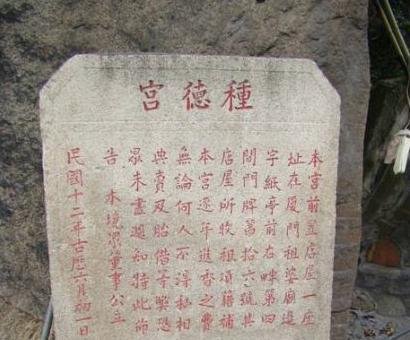 種德宮
本宮前置店屋一座
址在厦門祖婆廟邊
字紙亭前右畔第四
間門牌舊拾六號其
店屋所收租項籍補
本宮逐年進香之費
無論何人不得私相
典賣及胎借等獘恐
衆未盡週知特此佈
告 本境衆董事公立
民國十二年古曆六月初一日